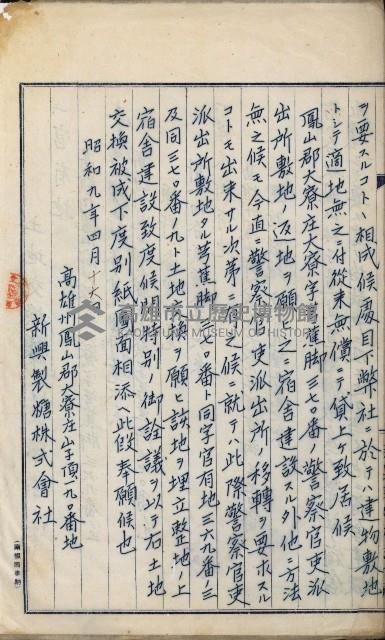 ヲ要スルコトハ相成候處目下弊社ニ於テハ建物敷地
トシテ適地無之ニ付從来無償ニテ貸上ケ致居候
鳳山郡大寮庄大寮字芎蕉脚三七〇番警察官吏派
出所敷地ノ返地ヲ願ヒ之ニ宿舎建設スル外他ニ方法
無之候モ今直ニ警察官吏派出所ノ移轉ヲ要求スル
コトモ出来サル次第ニ有之候ニ就テハ此際警察官吏
派出所敷地タル芎蕉脚三七〇番ト同字官有地三六九番ノ三
及同三七〇番ノ九ト土地交換ヲ願ヒ該地ヲ埋立整地ノ上
宿舎建設致度候間特別ノ御詮議ヲ以テ右土地
交換被成下度別紙圖面相添ヘ此段奉願候也
昭和九年四月十六日
高雄州鳳山郡大寮庄山子頂九〇番地
新興製糖株式會社
高雄市立歷史博物館
KAOHSIUNG MUSEUM OF HISTORY